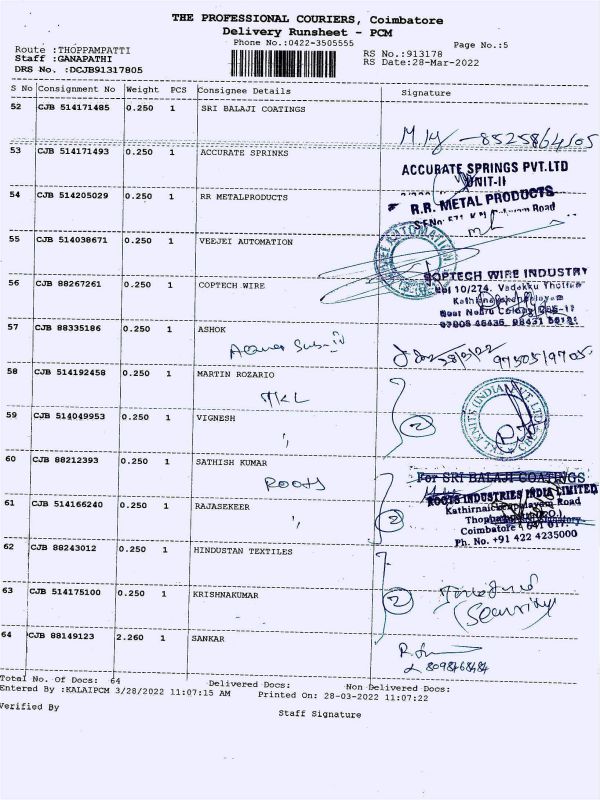 THE PROFESSIONAL COURIERS, Coimbatore
Delivery Runsheet - PCM
Phone No.:0422-3505555
Page No.:5
Route :THOPPAMPATTI
Staff :GANAPATHI
DRS No. :DCJB91317805
RS No.:913178
RS Date:28-Mar-2022
S No Consignment No Weight PCS Consignee Details Signature
52 CJB 514171485 0.250 1 SRI BALAJI COATINGS
53 CJB 514171493 0.250 1 ACCURATE SPRINKS
ACCURATE SPRINGS PVT.LTD
UNIT-II
54 CJB 514205029 0.250 1 RR METALPRODUCTS
R.R. METAL PRODUCTS
55 CJB 514038671 0.250 1 VEEJEI AUTOMATION
56 CJB 88267261 0.250 1 COPTECH.WIRE
COPTECH WIRE INDUSTRY
57 CJB 88335186 0.250 1 ASHOK
9750519705
58 CJB 514192458 0.250 1 MARTIN ROZARIO
TKL
59 CJB 514049953 0.250 1 VIGNESH
2
60 CJB 88212393 0.250 1 SATHISH KUMAR
ROOTS
For SRI BALAJI COATINGS
ROOTS INDUSTRIES INDIA LIMITED
61 CJB 514166240 0.250 1 RAJASEKEER
2
Coimbatore - 641 017.
Ph. No. +91 422 4235000
62 CJB 88243012 0.250 1 HINDUSTAN TEXTILES
63 CJB 514175100 0.250 1 KRISHNAKUMAR
2
(Security
64 CJB 88149123 2.260 1 SANKAR
Total No. Of Docs: 64 Delivered Docs: Non Delivered Docs:
Entered By :KALAIPCM 3/28/2022 11:07:15 AM Printed On: 28-03-2022 11:07:22
Verified By
Staff Signature